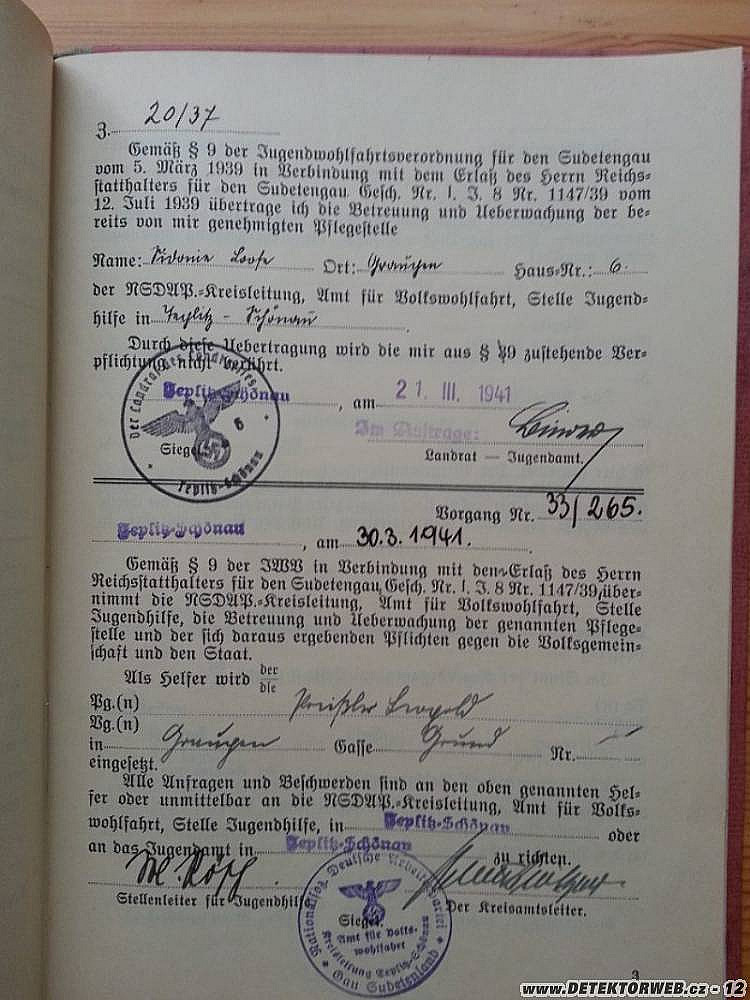 3. 20/37
Gemäß § 9 der Jugendwohlfahrtsverordnung für den Sudetengau
vom 5. März 1939 in Verbindung mit dem Erlaß des Herrn Reichs-
statthalters für den Sudetengau Gesch. Nr. I. J. 8 Nr. 1147/39 vom
12. Juli 1939 übertrage ich die Betreuung und Ueberwachung der be-
reits von mir genehmigten Pflegestelle
Name: Sidonie Loose Ort: Graupen Haus-Nr.: 6.
der NSDAP.-Kreisleitung, Amt für Volkswohlfahrt, Stelle Jugend-
hilfe in Teplitz - Schönau.
Durch diese Uebertragung wird die mir aus § 9 zustehende Ver-
pflichtung nicht berührt.
Teplitz-Schönau, am 21. III. 1941
Im Auftrage:
Siegel
Landrat — Jugendamt.
Der Landrat des Landkreises
6
Teplitz-Schönau
Vorgang Nr. 33/265.
Teplitz-Schönau, am 30.3.1941.
Gemäß § 9 der JWV in Verbindung mit den Erlaß des Herrn
Reichsstatthalters für den Sudetengau, Gesch. Nr. I. J. 8 Nr. 1147/39, über-
nimmt die NSDAP.-Kreisleitung, Amt für Volkswohlfahrt, Stelle
Jugendhilfe, die Betreuung und Ueberwachung der genannten Pflege-
stelle und der sich daraus ergebenden Pflichten gegen die Volksgemein-
schaft und den Staat.
Als Helfer wird der
die
Pg.(n) Preißler Leopold
Vg.(n)
in Graupen Gasse Grund Nr. —
eingesetzt.
Alle Anfragen und Beschwerden sind an den oben genannten Hel-
fer oder unmittelbar an die NSDAP.-Kreisleitung, Amt für Volks-
wohlfahrt, Stelle Jugendhilfe, in Teplitz-Schönau oder
an das Jugendamt in Teplitz-Schönau zu richten.
Stellenleiter für Jugendhilfe
Siegel.
Der Kreisamtsleiter.
Nationalsoz. Deutsche Arbeiterpartei
Amt für Volks-
wohlfahrt
Kreisleitung Teplitz-Schönau
Gau Sudetenland
3
www.DETEKTORWEB.cz - 12